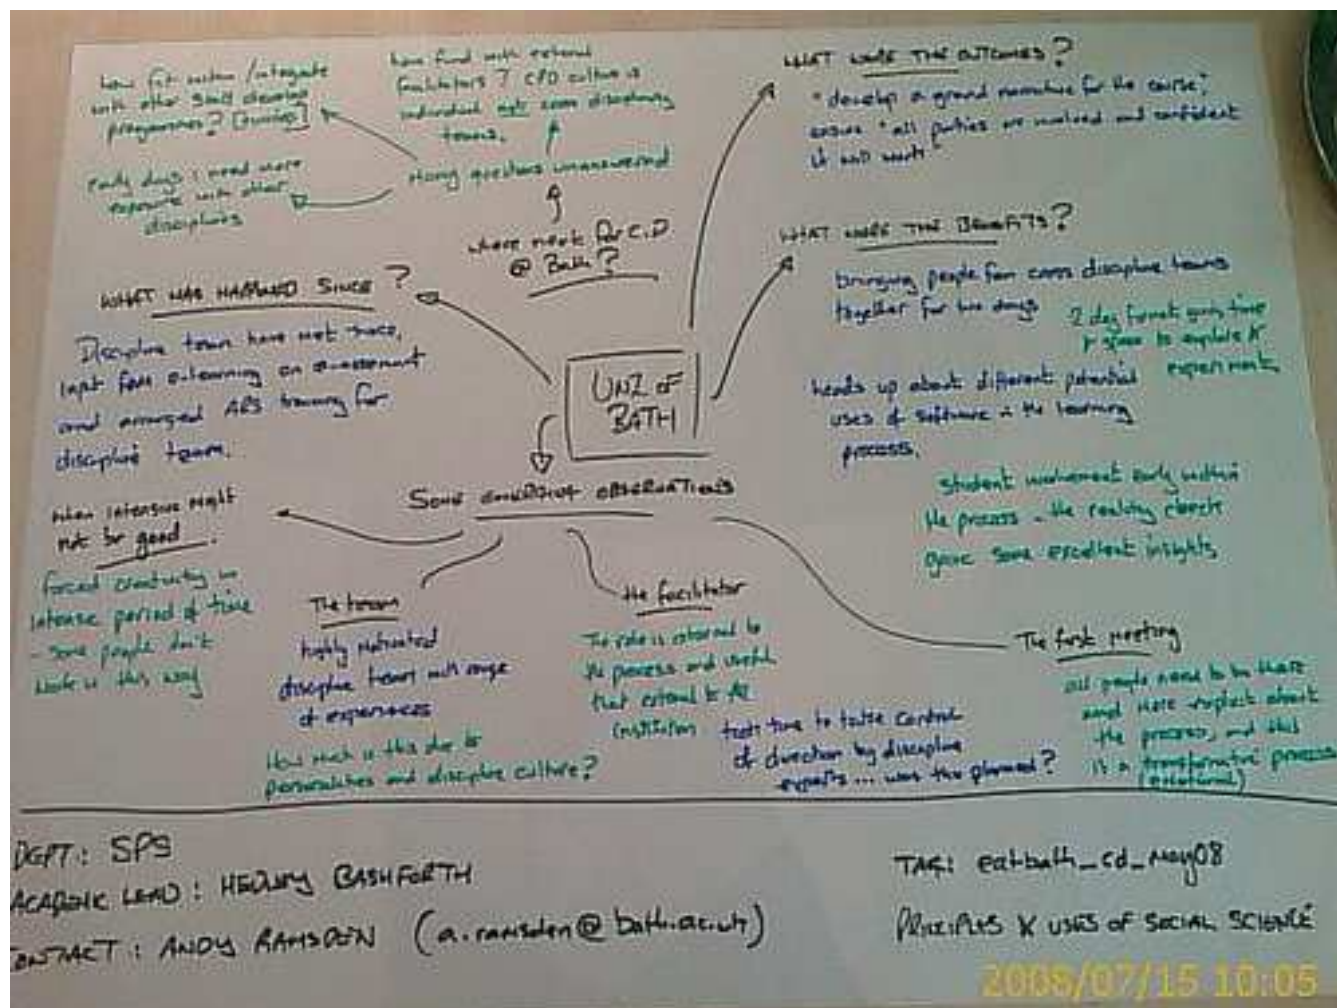 how fit within / integrate
with other staff develop
programmes?
early days; need more
exposure with other
disciplines
how fund with external
facilitators? CPD culture is
individual not cross disciplinary
teams.
Many questions unanswered
where next for C.D
@ Bath?
WHAT WERE THE OUTCOMES?
"develop a grand narrative for the course";
ensure "all parties are involved and confident
it will work"
WHAT WERE THE BENEFITS?
bringing people from cross discipline teams
together for two days
2 day format gives time
& space to explore &
experiment.
heads up about different potential
uses of software in the learning
process.
Student involvement early within
the process - the reality check
gave some excellent insights
WHAT HAS HAPPENED SINCE?
Discipline team have met since,
input from e-learning on e-assessment
and arranged ARS training for
discipline team.
UNI OF
BATH
SOME EMERGING OBSERVATIONS
when intensive might
not be good.
forced creativity in
intense period of time
- some people don't
work in this way
The team
highly motivated
discipline team with range
of experiences
How much is this due to
personalities and discipline culture?
the facilitator
The role is external to
the process and useful
that external to the
institution
took time to take control
of direction by discipline
experts ... was this planned?
The first meeting
all people need to be there
and more explicit about
the process, and this
is a transformative process
DEPT: SPS
ACADEMIC LEAD: HEDLEY BASHFORTH
CONTACT: ANDY RAMSDEN (a.ramsden@bath.ac.uk)
TAG: eatbath_cd_may08
PRINCIPLES & USES OF SOCIAL SCIENCE
2008/07/15 10:05